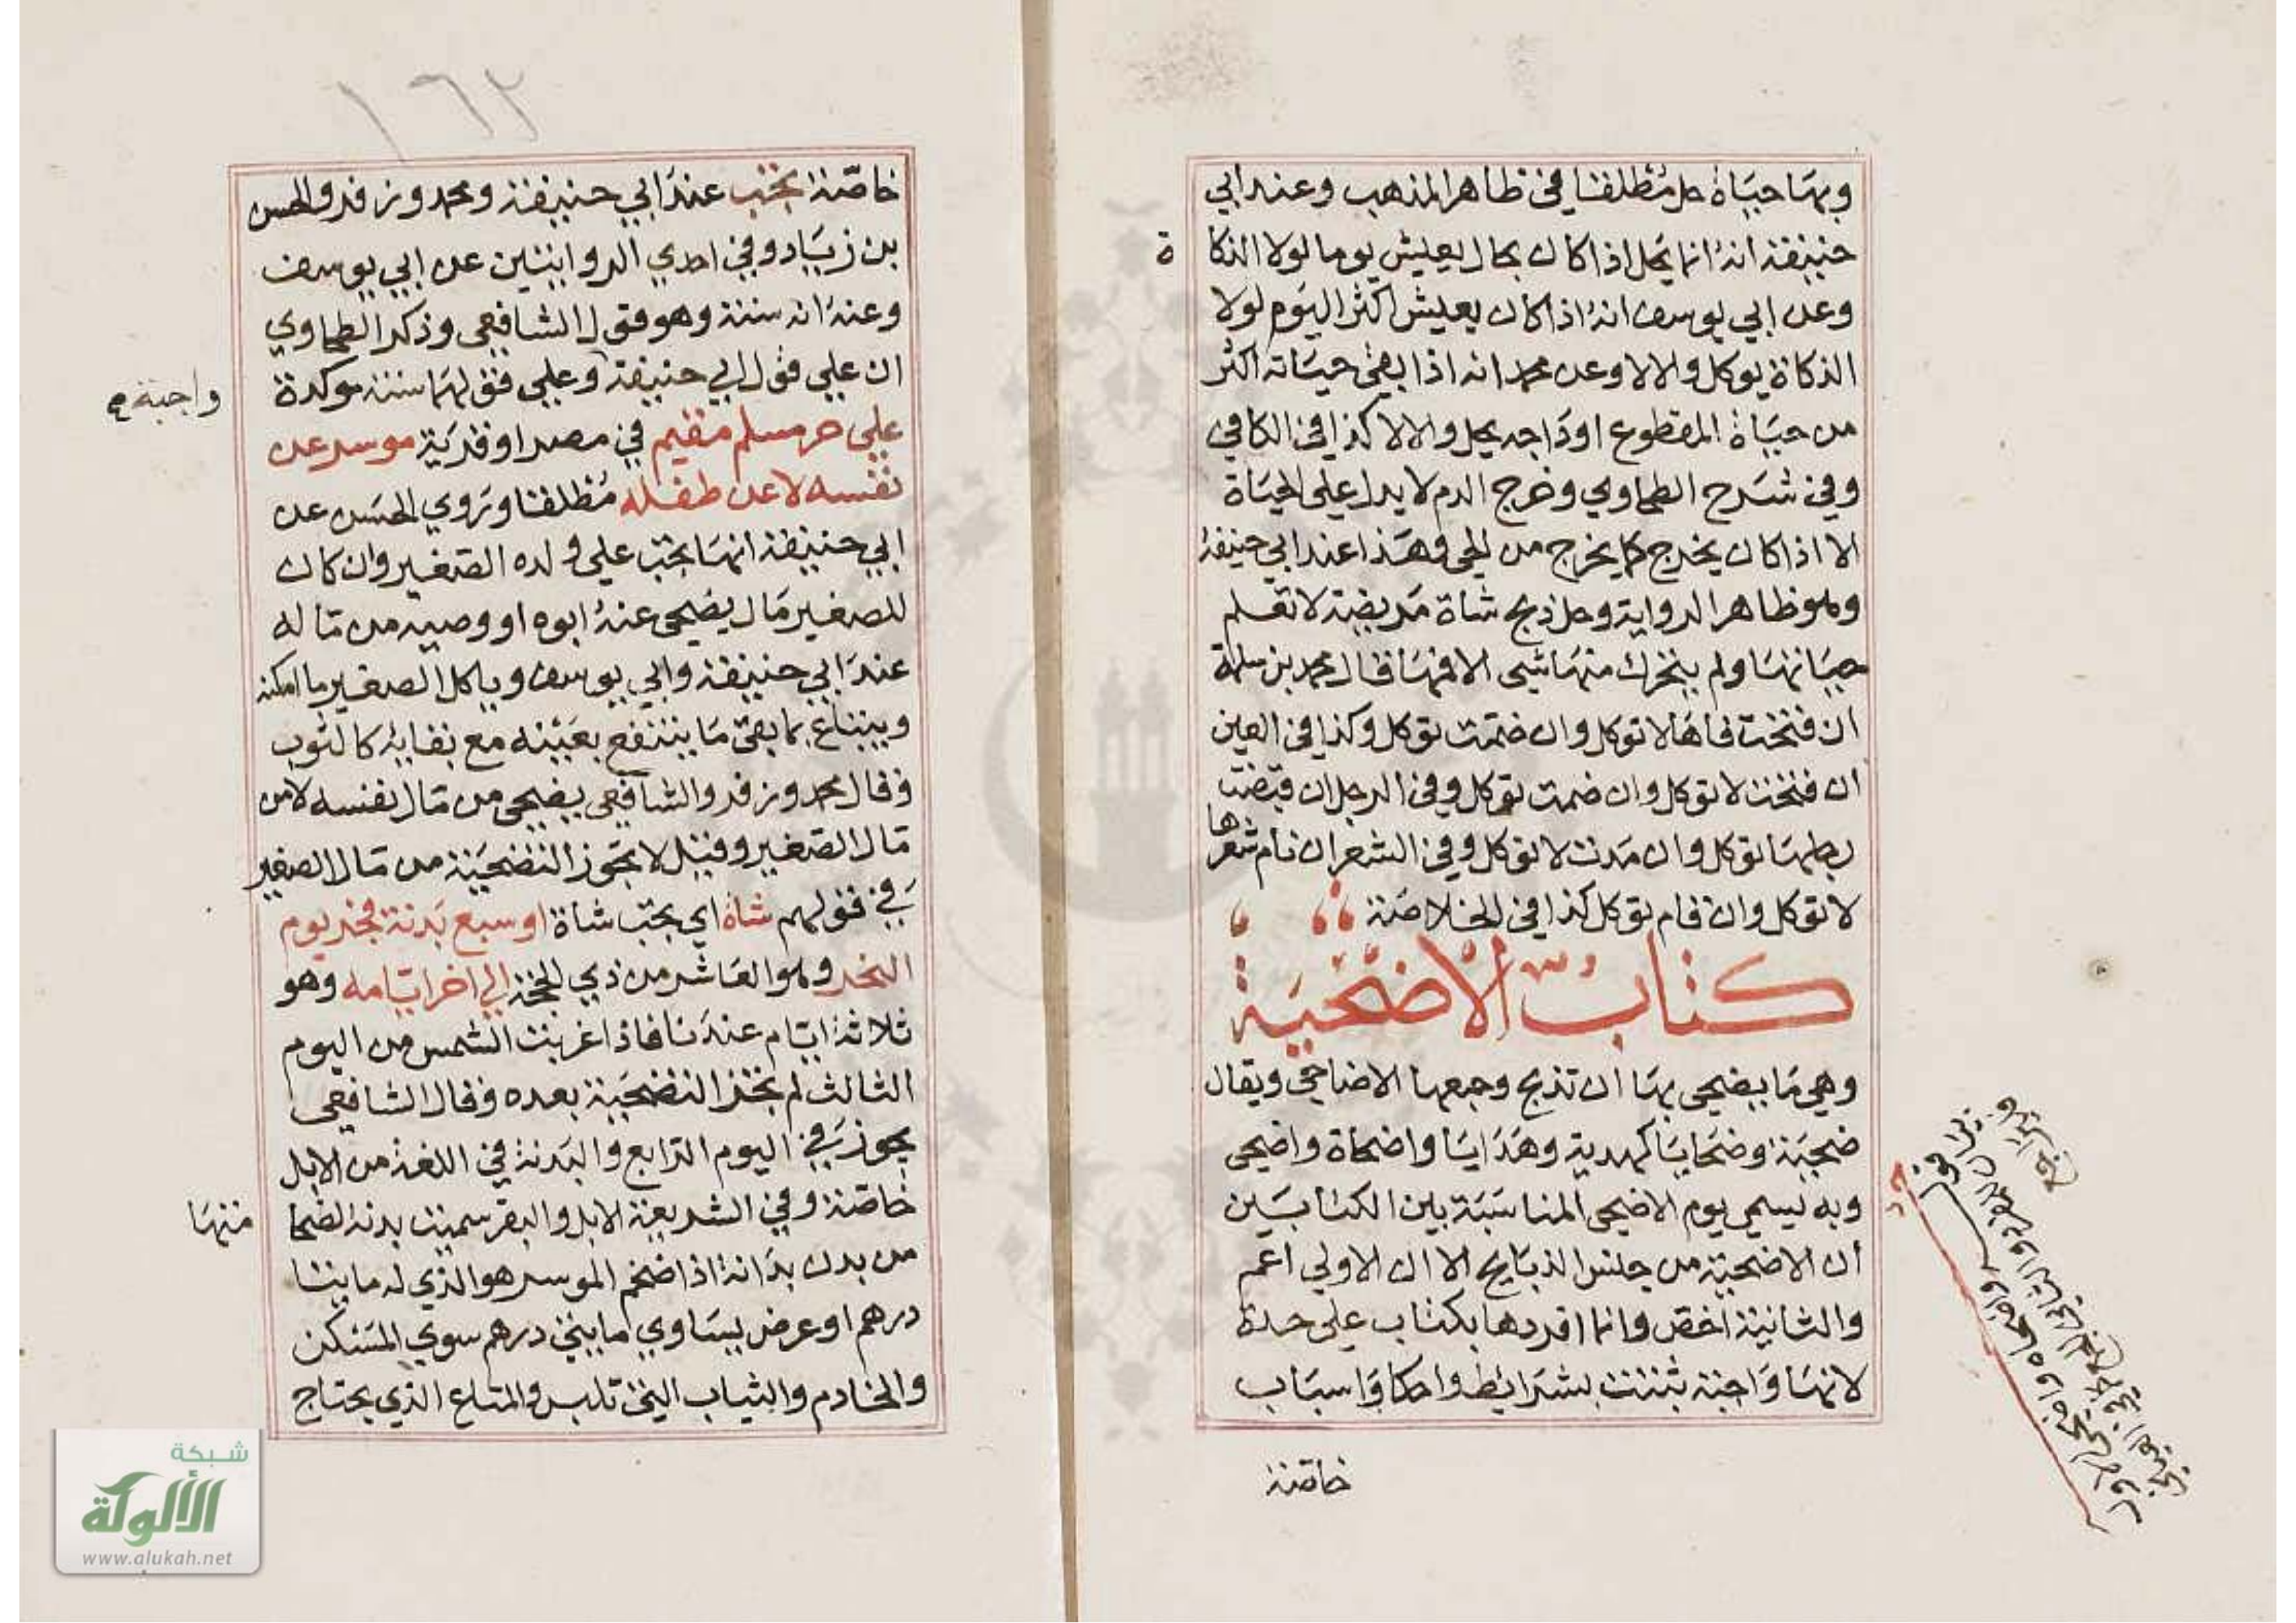 وبها حياة حل مطلقا في ظاهر المذهب وعند ابي
حنيفة انه انما يحل اذا كان بحال يعيش يوما لولا الذكاة
وعن ابي يوسف انه اذا كان يعيش اكثر اليوم لولا
الذكاة يوكل والا لا وعن محمد انه اذا بقى حياته اكثر
من حياة المقطوع اوداجه يحل والا لا كذا في الكافي
وفي شرح الطحاوي وخرج الدم لا يدل على الحياة
الا اذا كان يخرج كما يخرج من الحي وهذا عند ابي حنيفة
وهو ظاهر الرواية وحل ذبح شاة مريضة لا تعلم
حياتها ولم يتحرك منها شي الا فمها قال محمد بن سلمة
ان فتحت فاها لا توكل وان ضمت توكل وكذا في العين
ان فتحت لا توكل وان ضمت توكل وفي الرجل ان قبضت
رجلها توكل وان مدت لا توكل وفي الشعر ان نام شعرها
لا توكل وان قام توكل كذا في الخلاصة
كتاب الاضحية
وهي ما يضحى بها ان تذبح وجمعها الاضاحي ويقال
ضحية وضحايا كهدية وهدايا واضحاة واضحى
وبه يسمي يوم الاضحى المناسبة بين الكتابين
ان الاضحية من جنس الذبايح الا ان الاولي اعم
والثانية اخص وانما افردها بكتاب على حدة
لانها واجبة ثبتت بشرائط واحكا واسباب
خاصة
١٦٢
خاصة تجب عند ابي حنيفة ومحمد وزفر والحسن
بن زياد وفي احدي الروايتين عن ابي يوسف
وعنه انه سنة وهو قول الشافعى وذكر الطحاوي
ان علي قول ابي حنيفة وعلي قولهما سنة موكدة
واجبة
على حر مسلم مقيم في مصر او قرية موسر عن
نفسه لا عن طفله مطلقا وروي الحسن عن
ابي حنيفة انها تجب علي ولده الصغير وان كان
للصغير مال يضحى عنه ابوه او وصيه من ماله
عند ابي حنيفة وابي يوسف وياكل الصغير ما امكنه
ويبتاع بما بقى ما ينتفع بعينه مع بقايه كالثوب
وقال محمد وزفر والشافعى يضحى من مال نفسه لا من
مال الصغير وقيل لا تجوز التضحية من مال الصغير
في قولهم شاة اي يجب شاة او سبع بدنة فجر يوم
النحر وهو العاشر من ذي الحجة الي اخر ايامه وهو
ثلاثة ايام عندنا فاذا غربت الشمس من اليوم
الثالث لم تجز التضحية بعده وقال الشافعى
يجوز في اليوم الرابع والبدنة في اللغة من الابل
خاصة وفي الشريعة الابل والبقر سميت بدنة لضخا
منها
من بدن بدانة اذا ضخم الموسر هو الذي له مايتا
درهم او عرض يساوي مايتي درهم سوي المسكن
والخادم والثياب التي تلبس والمتاع الذي يحتاج
شبكة
الألوكة
www.alukah.net